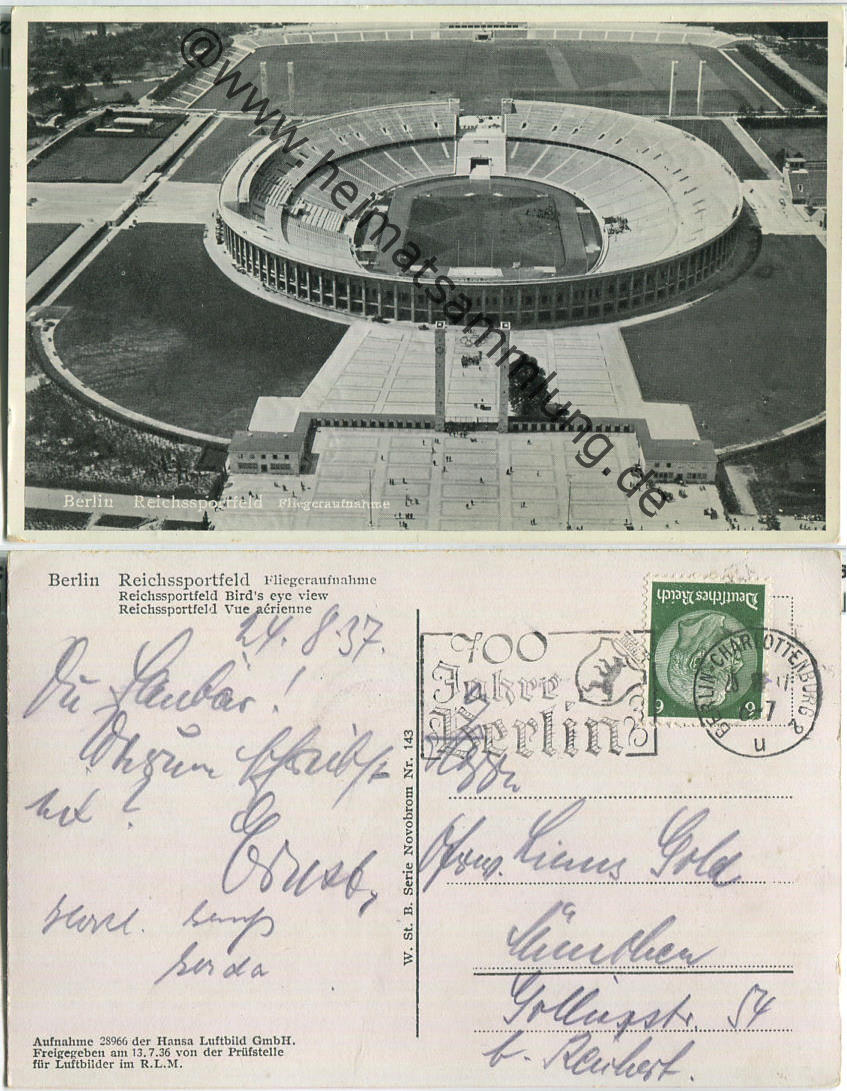 @www.heimatsammlung.de
Berlin Reichssportfeld Fliegeraufnahme
Berlin Reichssportfeld Fliegeraufnahme
Reichssportfeld Bird's eye view
Reichssportfeld Vue aérienne
24. 8. 37.
Du
!
Warum schreibst
?
Ernst
Herzl.
Gerda
Aufnahme 28966 der Hansa Luftbild GmbH.
Freigegeben am 13.7.36 von der Prüfstelle
für Luftbilder im R.L.M.
W. St. B. Serie Novobrom Nr. 143
700
Jahre
Berlin
Deutsches Reich
6 6
BERLIN-CHARLOTTENBURG 2
u
Gold
München
54
b.